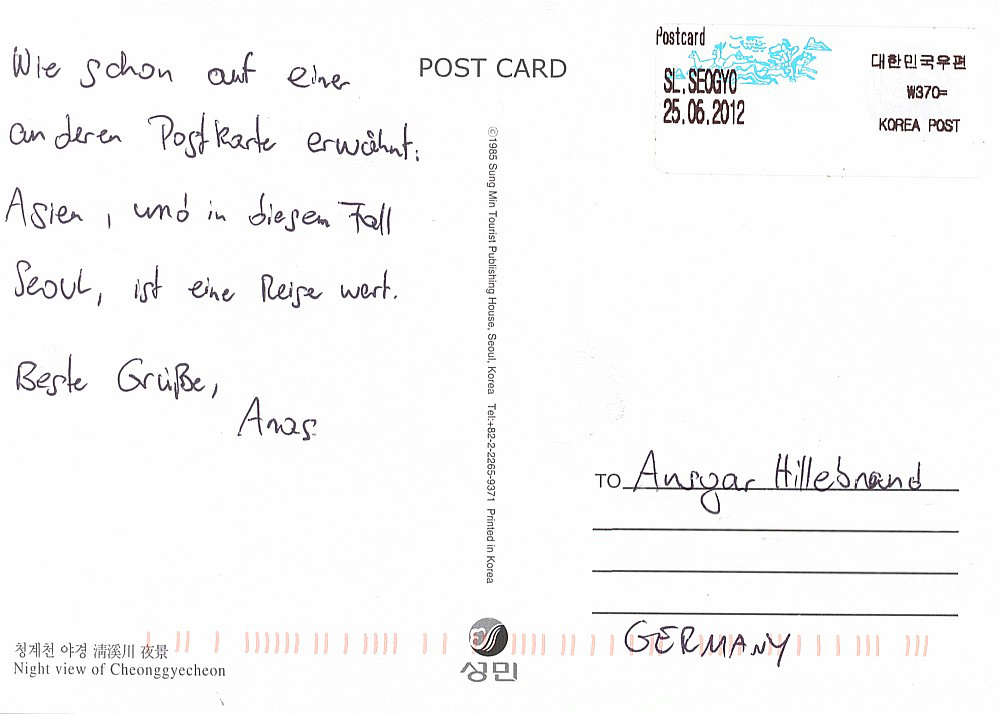 Wie schon auf einer
anderen Postkarte erwähnt:
Asien, und in diesem Fall
Seoul, ist eine Reise wert.
Beste Grüße,
Anas
POST CARD
©1985 Sung Min Tourist Publishing House, Seoul, Korea Tel:+82-2-2265-9371 Printed in Korea
Postcard
SL.SEOGYO
25.06.2012
대한민국우편
₩370=
KOREA POST
TO Ansgar Hillebrand
GERMANY
청계천 야경 淸溪川 夜景
Night view of Cheonggyecheon
성민